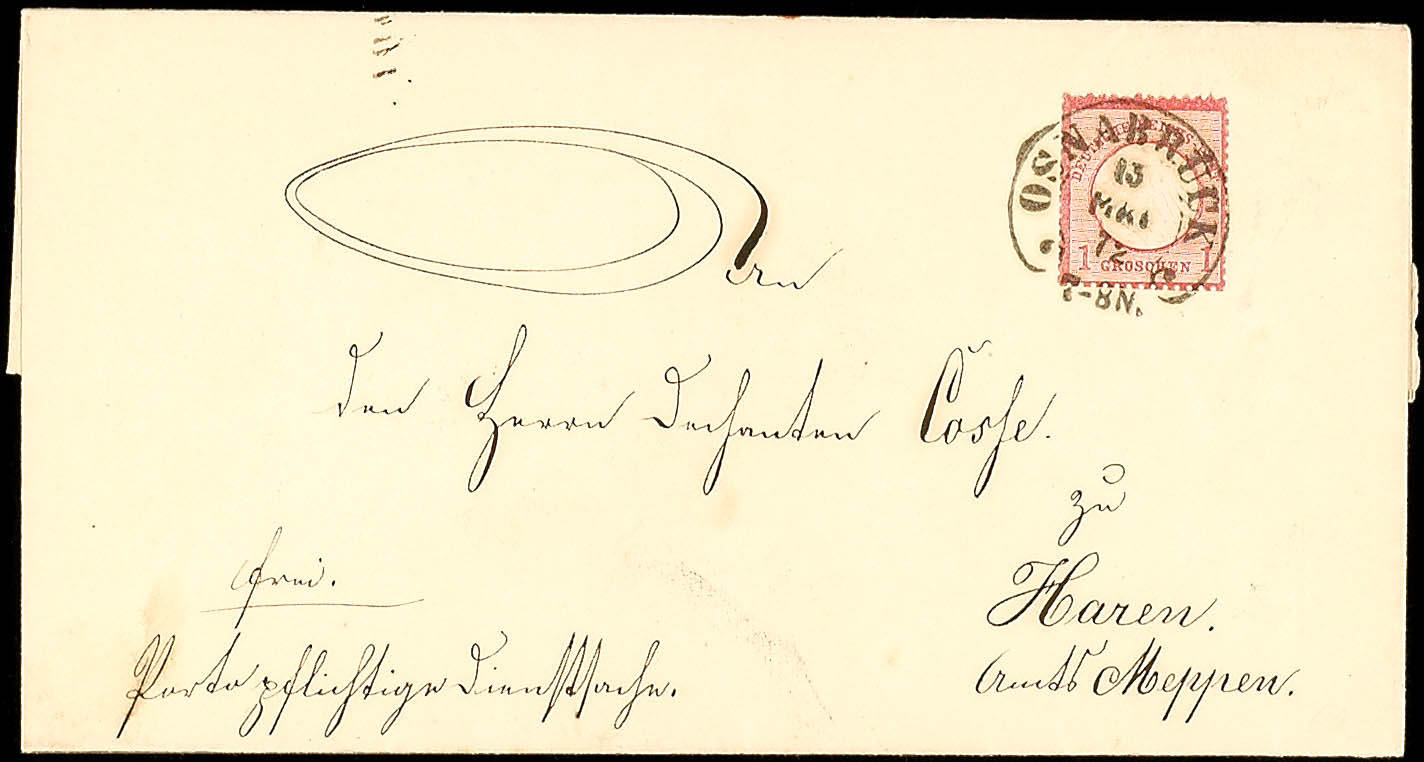 OSNABRÜCK
13
MAI
72
7-8N.
DEUTSCHE REICHS
1 GROSCHEN 1
An
den Herrn Dechanten Cosse.
zu
Haren.
Amts Meppen.
frei.
Portopflichtige Dienstsache.